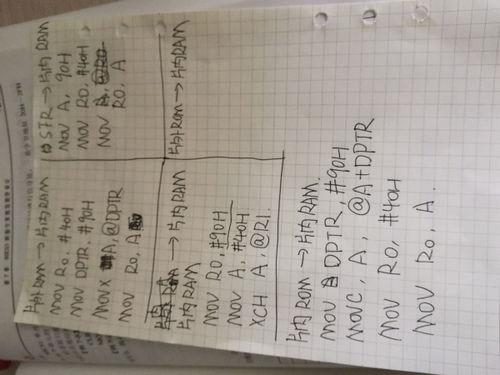 STR → 片内RAM
MOV A, 90H
MOV R0, #40H
MOV @R0
R0, A
片外ROM → 片内RAM
片外ROM → 片内RAM
MOV R0. #40H
MOV DPTR. #90H
MOVX A, @DPTR
MOV R0. A
→ 片内RAM
片内RAM
MOV R0, #90H
MOV A, #40H
XCH A, @R1.
片内ROM → 片内RAM.
MOV DPTR, #90H
MOVC, A, @A+DPTR
MOV R0, #40H
MOV R0, A.